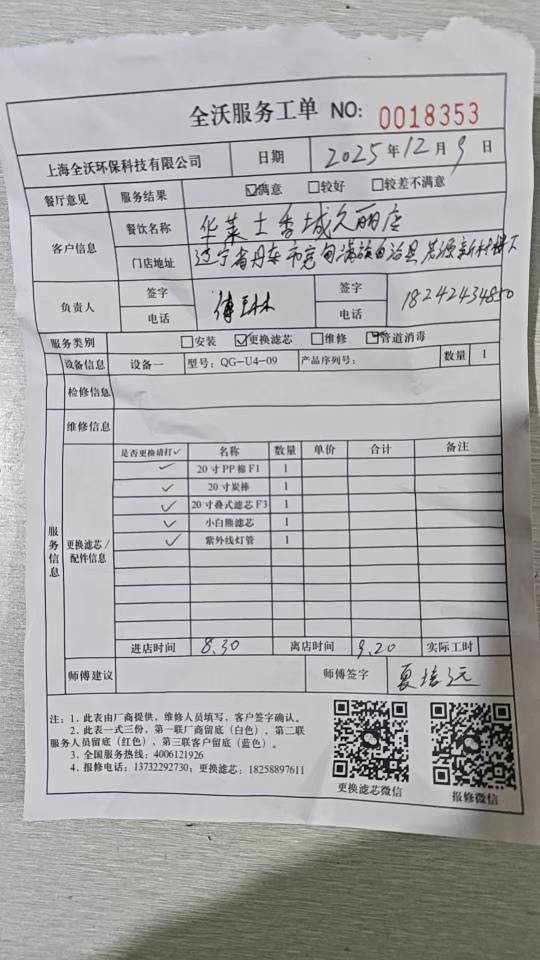 全沃服务工单 NO: 0018353
上海全沃环保科技有限公司 日期 2025年12月9日
餐厅意见 服务结果 ☑满意 □较好 □较差不满意
客户信息 餐饮名称 华莱士香城久丽店
门店地址 辽宁省丹东市宽甸满族自治县
负责人 签字 电话 签字 电话 18242434850
服务类别 □安装 ☑更换滤芯 □维修 ☑管道消毒
服务信息
设备信息 设备一 型号: QG-U4-09 产品序列号: 数量 1
检修信息
维修信息
更换滤芯/配件信息
是否更换请打✓ 名称 数量 单价 合计 备注
✓ 20寸PP棉F1 1
✓ 20寸炭棒 1
✓ 20寸叠式滤芯F3 1
✓ 小白熊滤芯 1
✓ 紫外线灯管 1
进店时间 8.30 离店时间 9.20 实际工时
师傅建议 师傅签字 夏培元
注: 1. 此表由厂商提供, 维修人员填写, 客户签字确认。
2. 此表一式三份, 第一联厂商留底(白色), 第二联
服务人员留底(红色), 第三联客户留底(蓝色)。
3. 全国服务热线: 4006121926
4. 报修电话: 13732292730; 更换滤芯: 18258897611
更换滤芯微信 报修微信